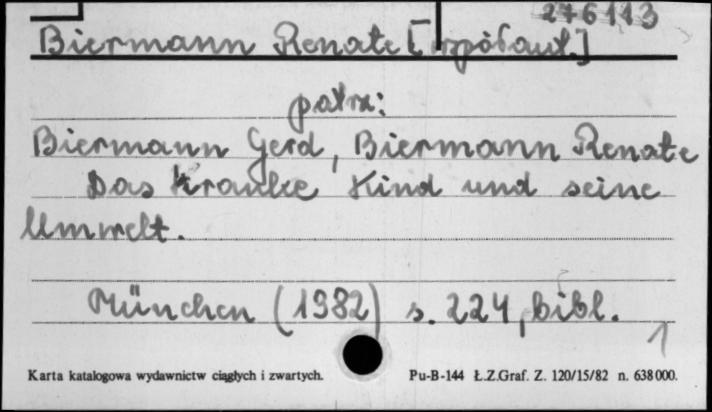 276113
Biermann Renate [współaut.]
patrz:
Biermann Gerd, Biermann Renate
Das Kranke Kind und seine
Umwelt.
München (1982) s. 224, bibl.
1
Karta katalogowa wydawnictw ciągłych i zwartych. Pu-B-144 Ł.Z.Graf. Z. 120/15/82 n. 638000.